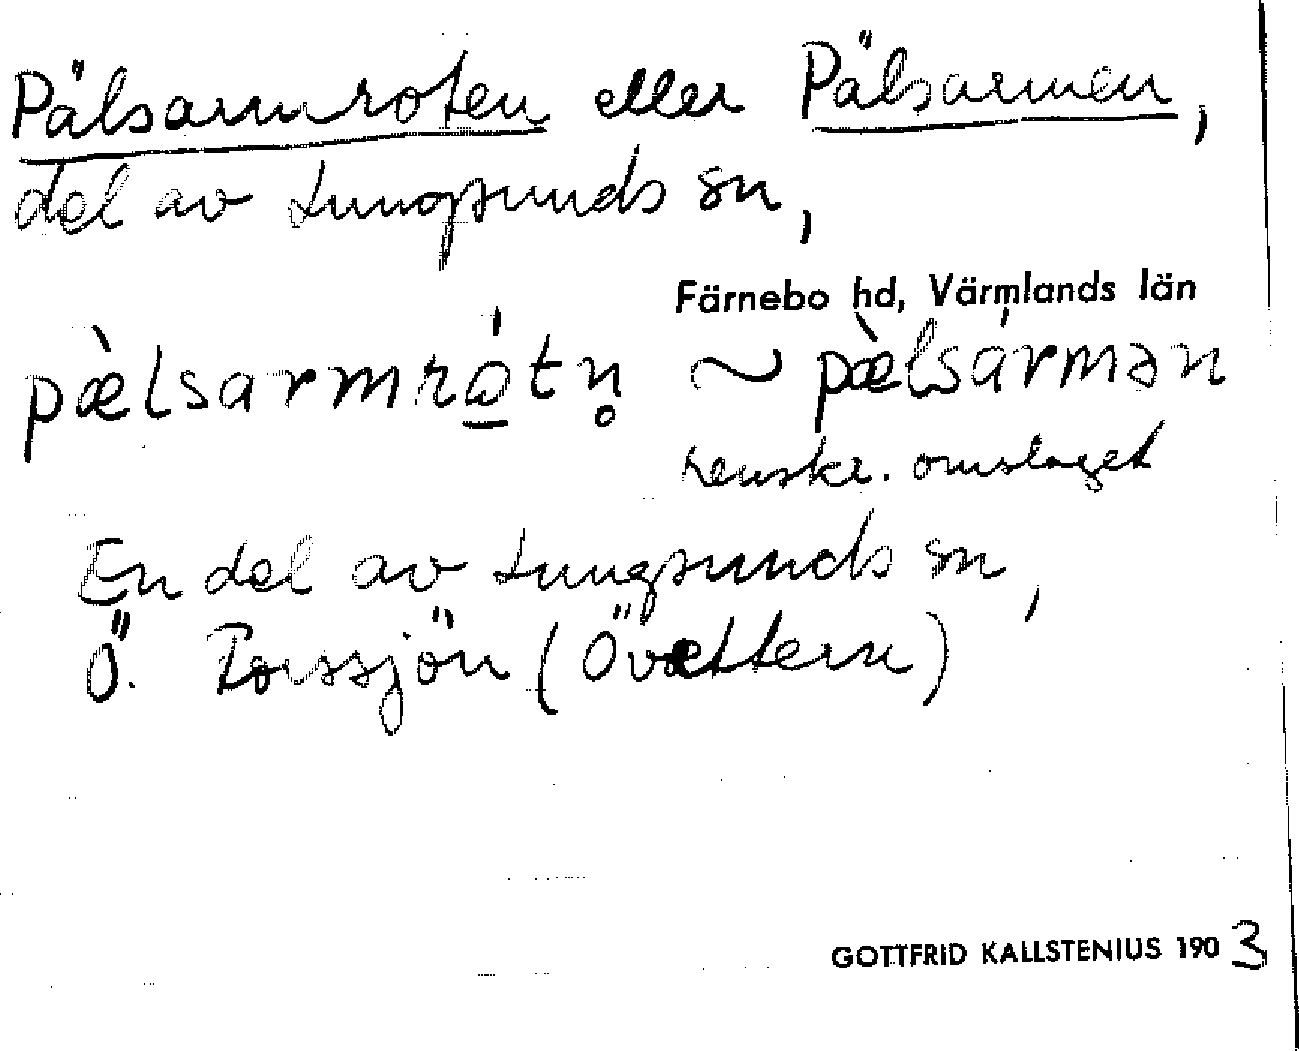 Pälsarmroten eller Pälsarmen,
del av Lungsunds sn,
Färnebo hd, Värmlands län
pæ̀lsarmró̲tn̥ ~ pæ̀lsármən
renskr. omslaget
En del av Lungsunds sn,
Ö. Torssjön (Övættern)
GOTTFRID KALLSTENIUS 1903